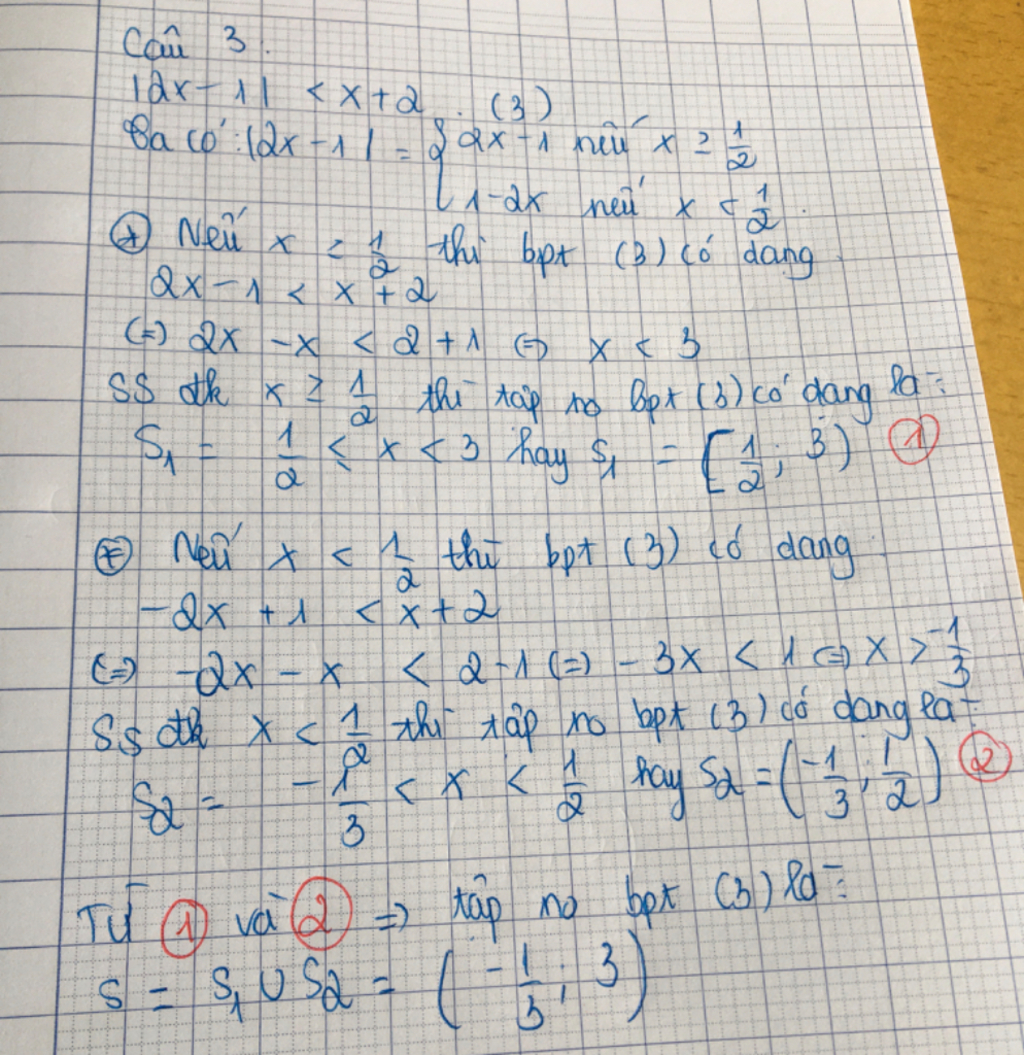 Câu 3.
|2x-1| < x+2. (3)
Ta có: |2x-1| = { 2x-1 nếu x ≥ 1/2
{ 1-2x nếu x < 1/2.
⊛ Nếu x ≥ 1/2 thì bpt (3) có dạng
2x-1 < x+2
(=) 2x -x < 2+1 (=) x < 3
SS đk x ≥ 1/2 thì tập no bpt (3) có dạng là:
S₁ = 1/2 ≤ x < 3 hay S₁ = [1/2; 3) ①
⊛ Nếu x < 1/2 thì bpt (3) có dạng:
-2x +1 < x+2
(=) -2x - x < 2-1 (=) -3x < 1 (=) x > -1/3
SS đk x < 1/2 thì tập no bpt (3) có dạng là:
S2 = -1/3 < x < 1/2 hay S2 = (-1/3; 1/2) ②
Từ ① và ② => tập no bpt (3) là:
S = S₁ ∪ S2 = (-1/3; 3)